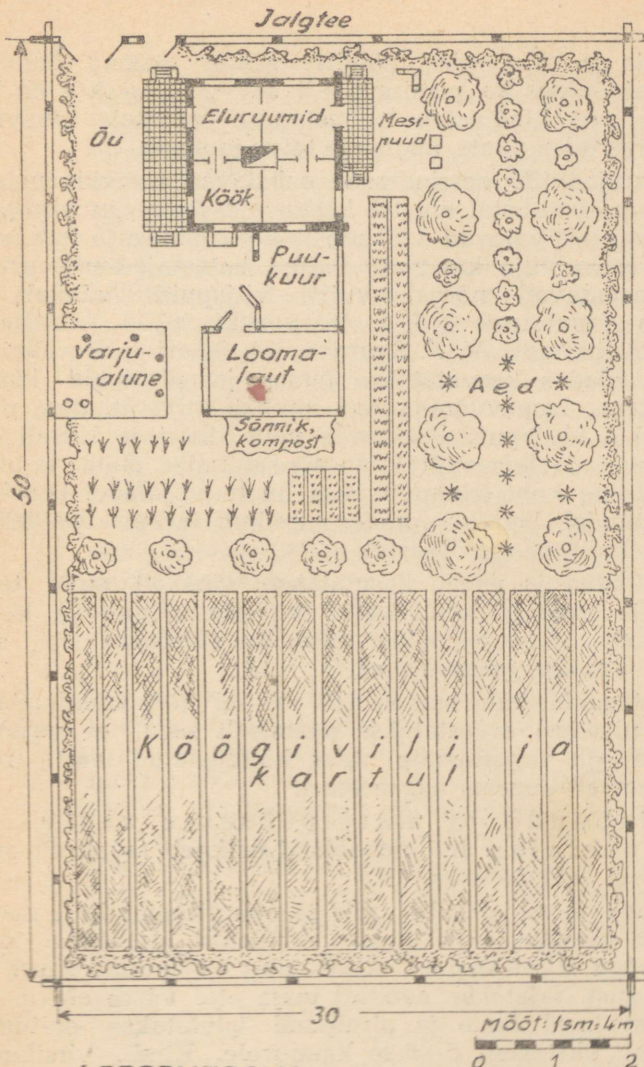 Jalgtee
Õu
Eluruumid
Mesi-
puud
Köök
Puu-
kuur
Varju-
alune
Looma-
laut
Aed
Sõnnik,
kompost
50
Köögivili ja
kartul
30
Mõõt: 1sm=4m
0 1 2